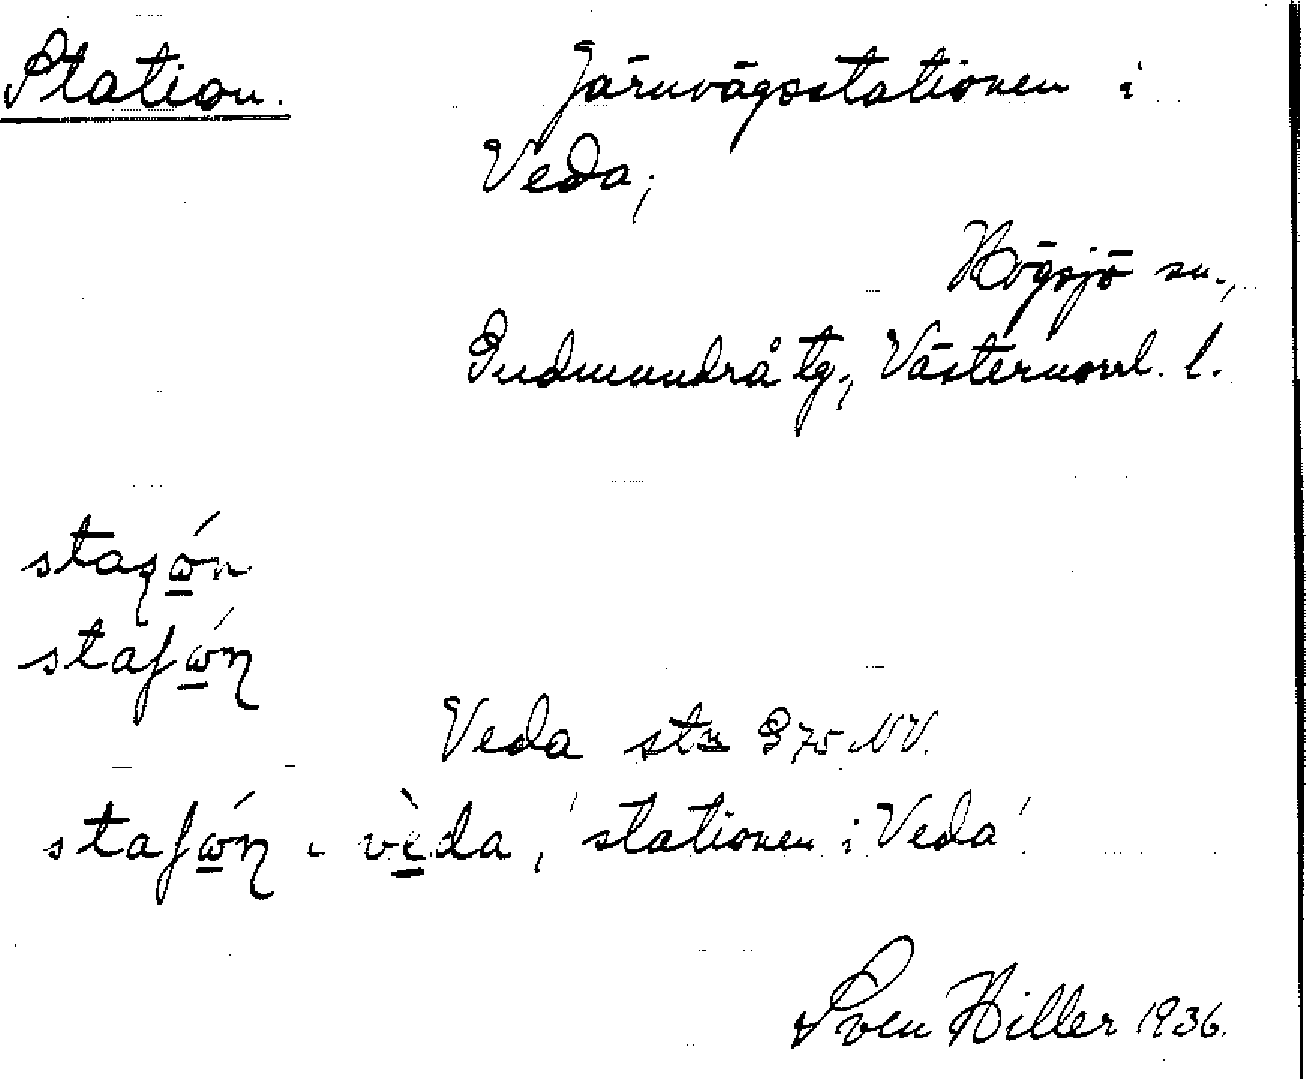 Station. Järnvägsstationen i
Veda;
Högsjö sn.,
Gudmundrå tg., Västernorrl. l.
staʃώ̲n
staʃώ̲ɳ
Veda stn G75 NV.
staʃώ̲ɳ ɩ vè̲da, 'stationen i Veda'
Sven Hiller 1936.